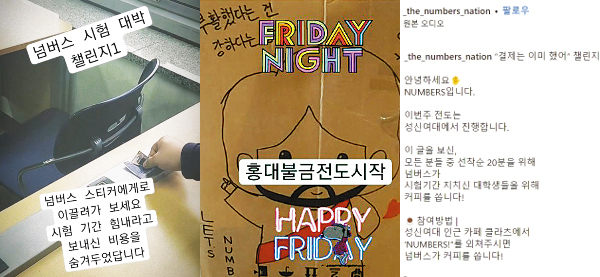 넘버스 시험 대박
챌린지1
넘버스 스티커에게로
이끌려가 보세요
시험 기간 힘내라고
보내신 비용을
숨겨두었답니다
부활했다는 건
강하다는
FRIDAY
NIGHT
홍대불금전도시작
HAPPY
FRIDAY
LET'S
NUMB
_the_numbers_nation • 팔로우
원본 오디오
_the_numbers_nation "결제는 이미 했어" 챌린지
안녕하세요
NUMBERS입니다.
이번주 전도는
성신여대에서 진행합니다.
이 글을 보신,
모든 분들 중 선착순 20분을 위해
넘버스가
시험기간 지치신 대학생들을 위해
커피를 쏩니다!
참여방법 |
성신여대 인근 카페 클라츠에서
'NUMBERS!'를 외쳐주시면
넘버스가 커피를 쏩니다!